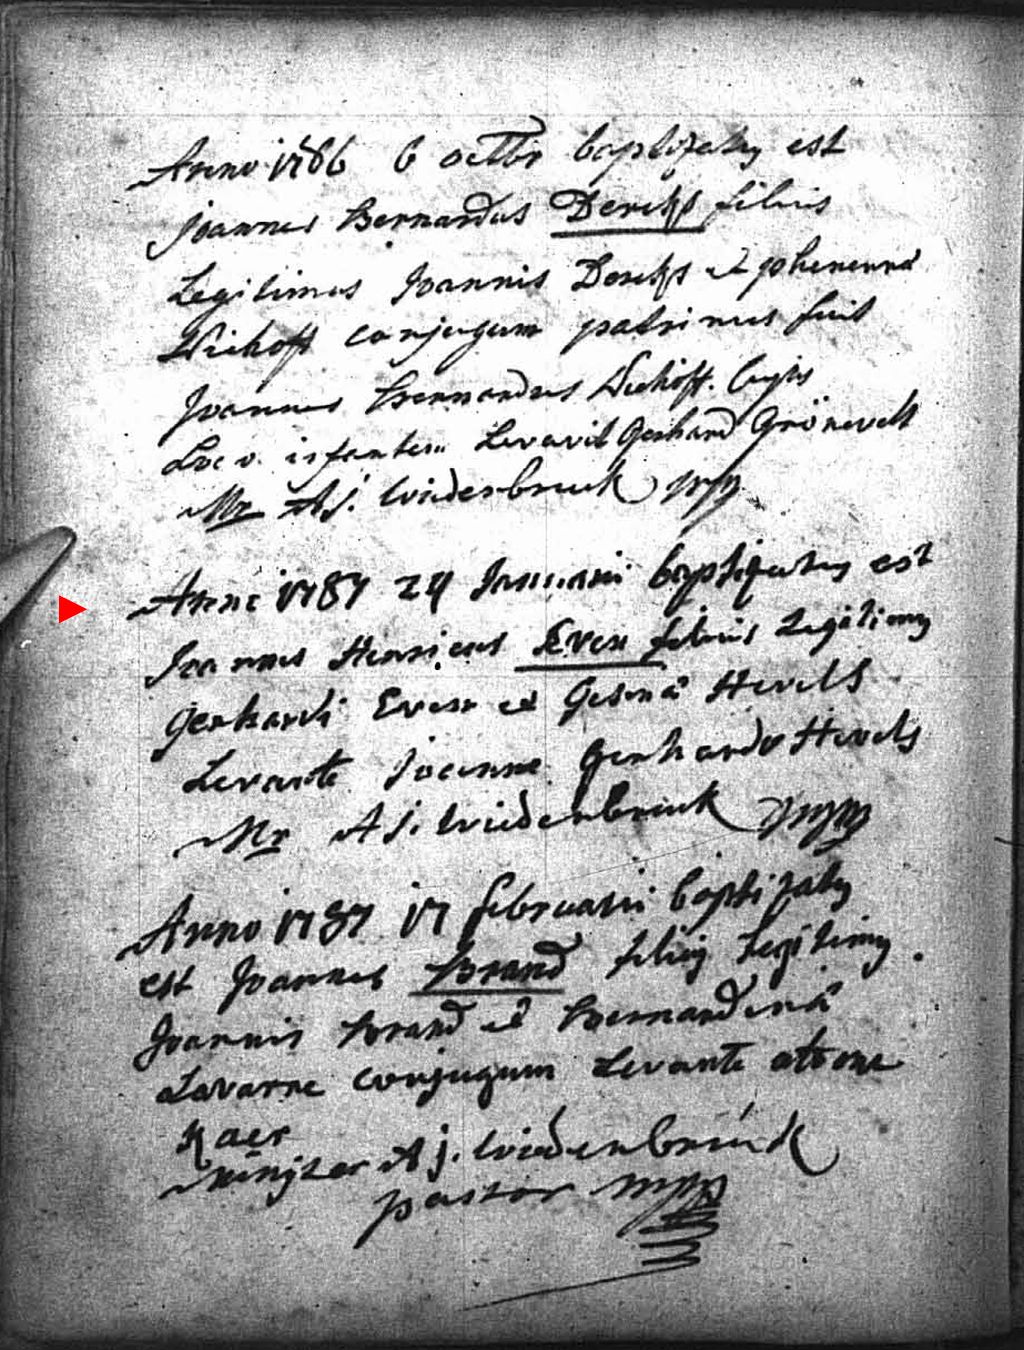 Anno 1786 6 octbr baptizatus est
Joannes Bernardus Derckx filius
Legitimus Joannis Derckx et phenenna
Wiehoff conjugum patrinus fuit
Joannes Bernardus Wiehoff. Cujus
Loco infantem Levavit Gerhard Grönevelt
Mr A J. Wiedenbruck mpp
Anno 1787 24 Januarii baptizatus est
Joannes Henricus Even filius Legitimus
Gerhardi Even et Gesina Hevels
Levante Joanne Gerhardo Hevels
Mr A J. Wiedenbruck mpp
Anno 1787 17 februarii baptizatus
est Joannes Brand filius Legitimus
Joannis Brand et Bernardina
Lavarne conjugum Levante
Kaer
Minister A J. Wiedenbrück
pastor mpp